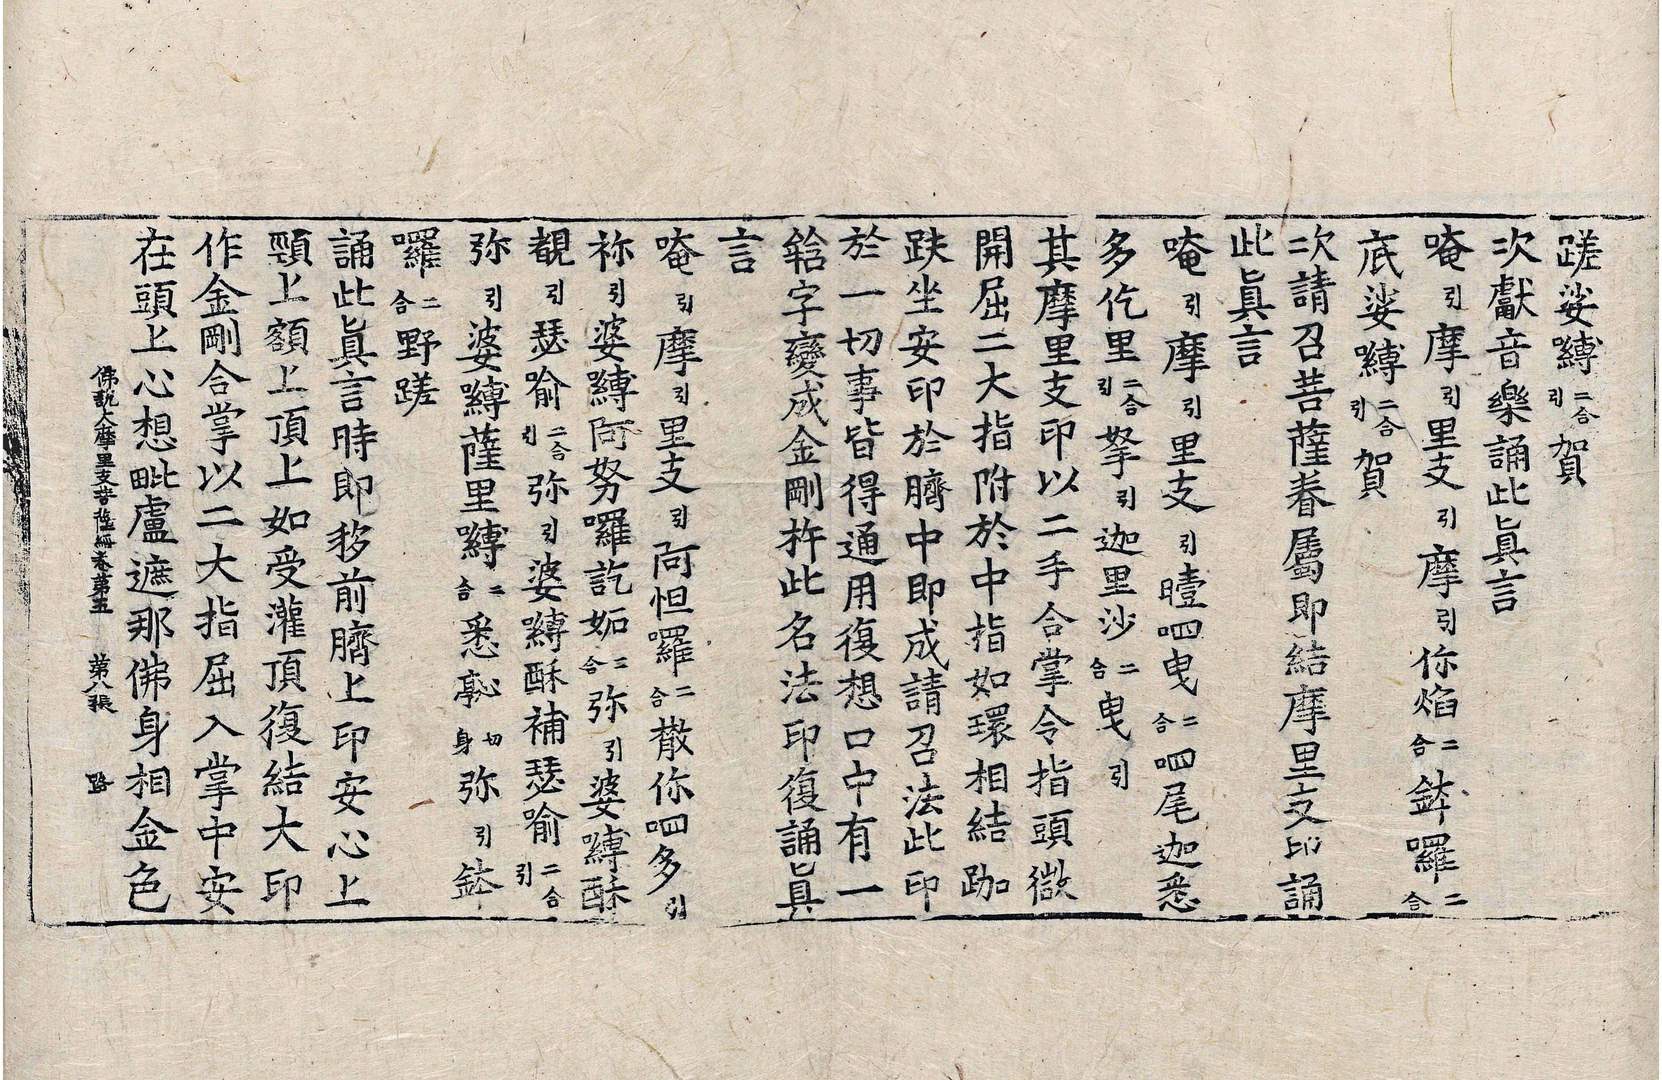 蹉娑嚩二合引賀
次獻音樂誦此眞言
唵引摩引里支引摩引你焰二合鉢囉二合
底娑嚩二合引賀
次請召菩薩眷屬即結摩里支印誦
此眞言
唵引摩引里支引曀呬曳二合呬尾迦悉
多仡里二合引拏引迦里沙二合曳引
其摩里支印以二手合掌令指頭微
開屈二大指附於中指如環相結跏
趺坐安印於臍中即成請召法此印
於一切事皆得通用復想口中有一
𤚥字變成金剛杵此名法印復誦眞
言
唵引摩引里支引阿怛囉二合散你呬多引
祢引婆嚩阿努囉訖妬二合弥引婆嚩酥
覩引瑟喻二合引弥引婆嚩酥補瑟喻二合引
弥引婆嚩薩里嚩二合悉𠆙切身弥引鉢
囉二合野蹉
誦此眞言時即移前臍上印安心上
頸上額上頂上如受灌頂復結大印
作金剛合掌以二大指屈入掌中安
在頭上心想毗盧遮那佛身相金色
佛說大摩里支菩薩經卷第五 第八張 路